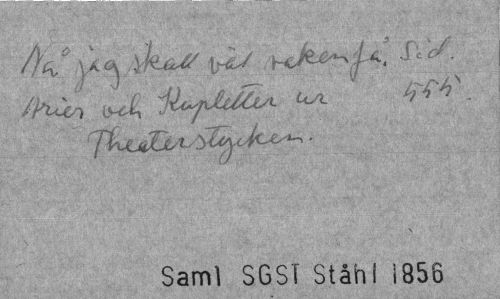 Nå jag skall väl raken få. Sid.
Arier och Kupletter ur 555.
Theaterstycken.
Saml SGST Ståhl 1856